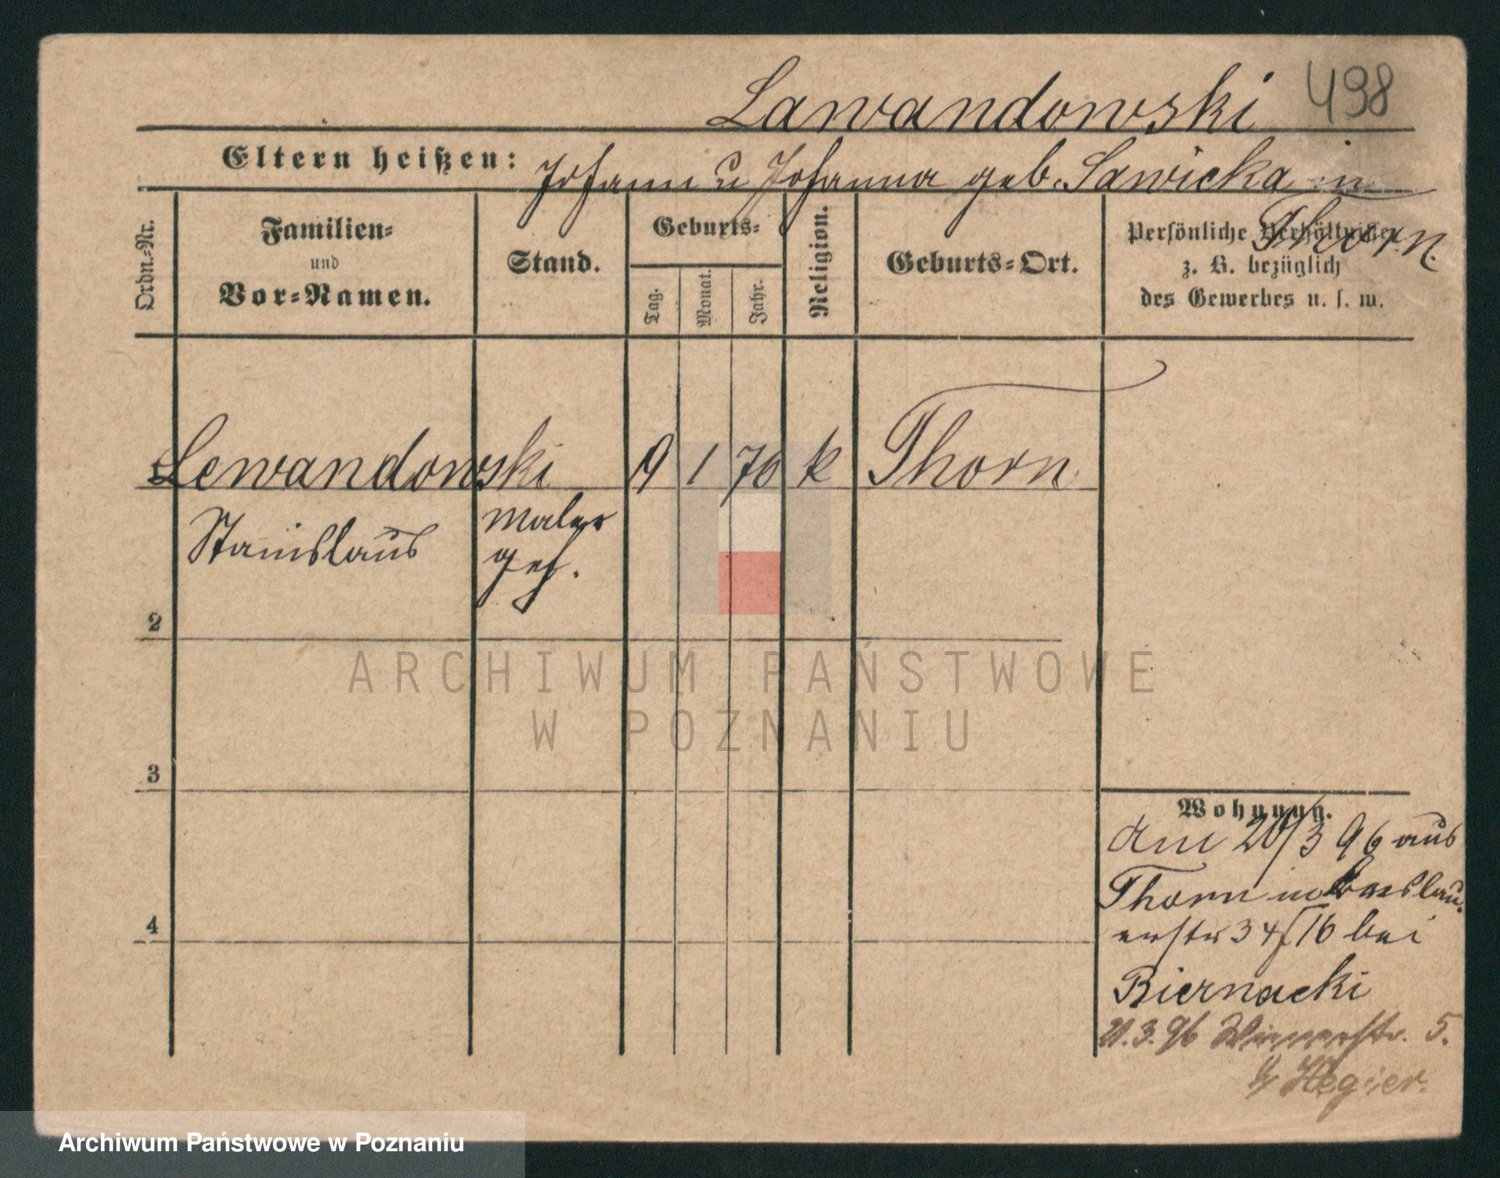 Lawandowski 498
Eltern heißen: Johann u Johanna geb. Sawicka in
Thorn.
Ordn.-Nr.
Familien-
und
Vor-Namen.
Stand.
Geburts-
Tag. Monat. Jahr.
Religion.
Geburts-Ort.
Persönliche Verhältnisse
z. B. bezüglich
des Gewerbes u. s. w.
Lewandowski 9 1 70 k Thorn
Stanislaus Maler
geh.
2
3
4
Wohnung.
Am 20/3 96 aus
Thorn in Breslau-
erstr 34/16 bei
Biernacki
3. 96 Wienerstr. 5.
b/ Hegier.
ARCHIWUM PAŃSTWOWE
W POZNANIU
Archiwum Państwowe w Poznaniu